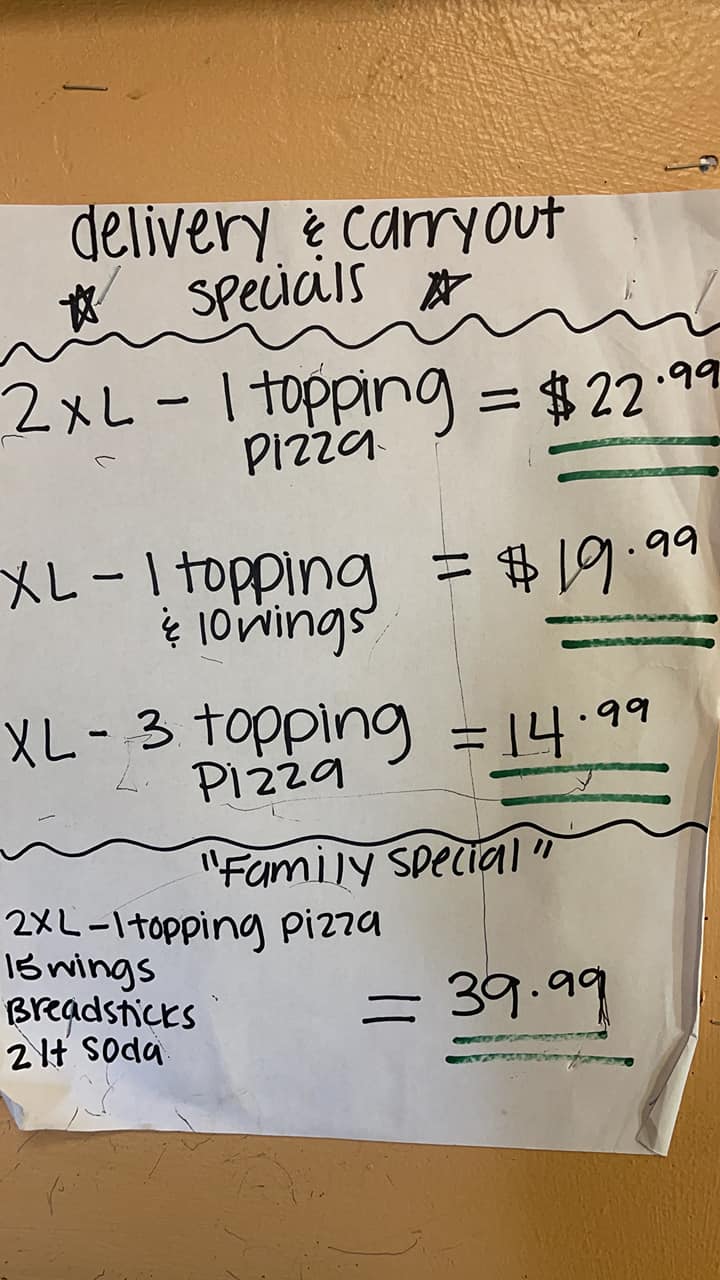 delivery & carryout
specials
2xL - 1 topping = $22.99
pizza
XL - 1 topping = $19.99
& 10 wings
XL - 3 topping = 14.99
Pizza
"Family special"
2XL - 1 topping pizza
15 wings
Breadsticks = 39.99
2 lt soda